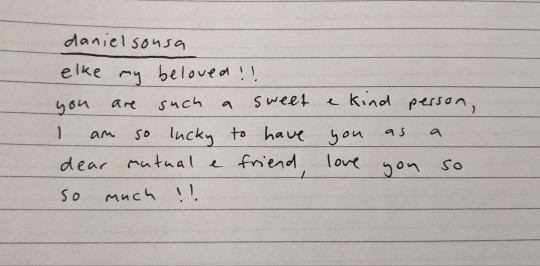 danielsousa
elke my beloved!!
you are such a sweet & kind person,
I am so lucky to have you as a
dear mutual & friend, love you so
so much !!